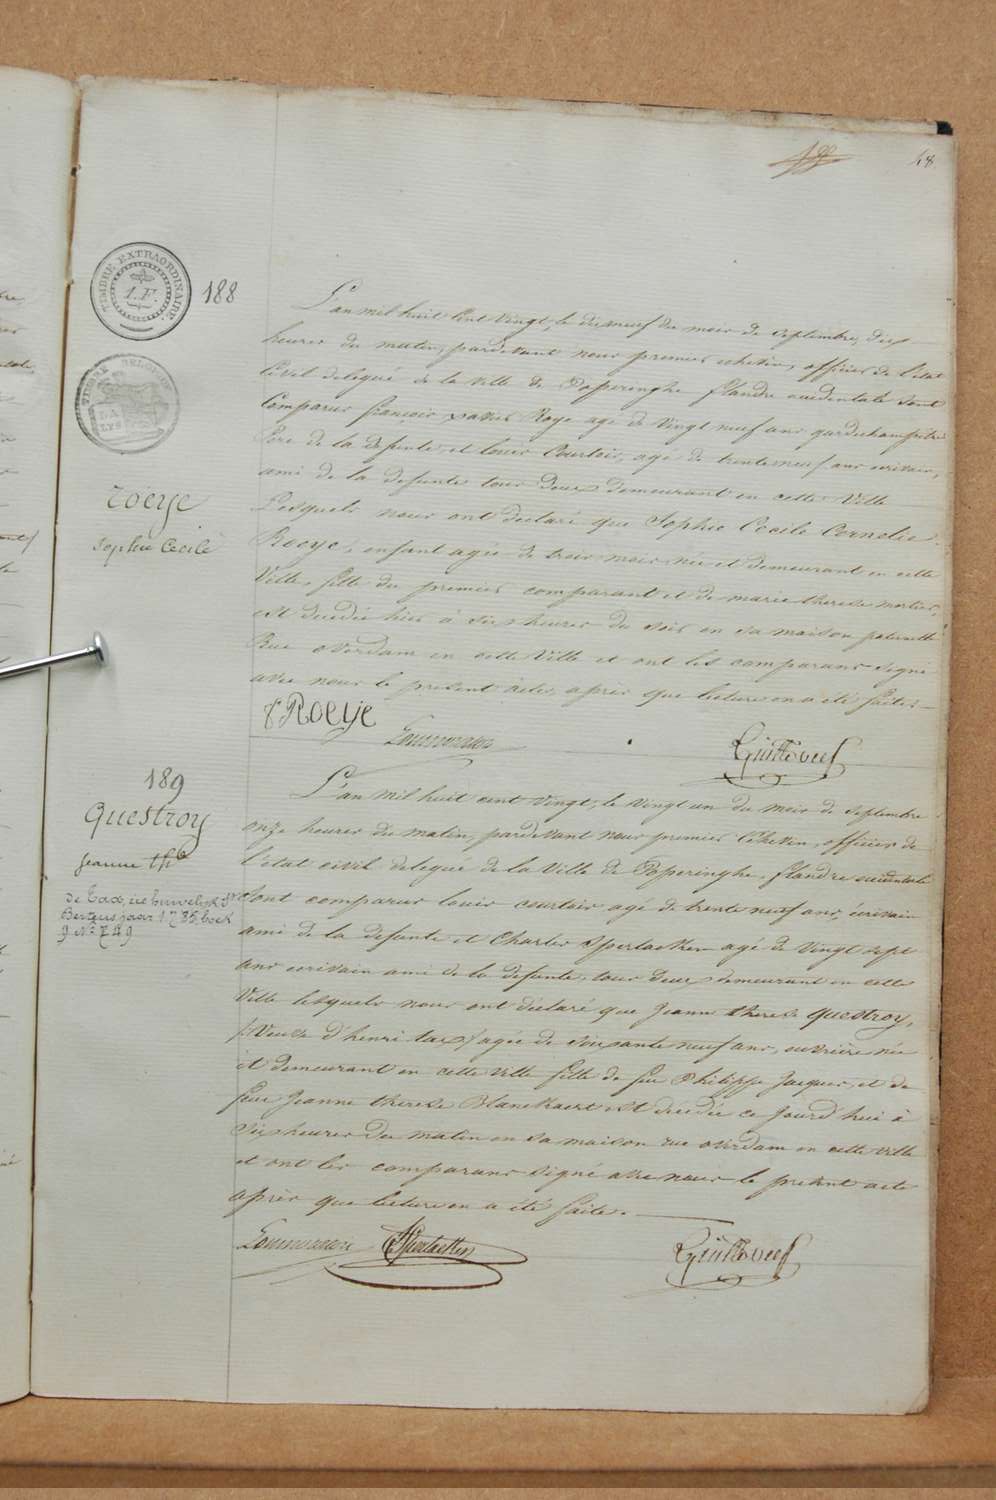 48
TIMBRE EXTRAORDINAIRE
1. F.
188
L'an mil huit Cent Vingt, le dixneuf du mois de septembre, dix
heures du matin, pardevant nous premier echevin, officier de l'etat
Civil delegué de la Ville de Poperinghe flandre occidentale Sont
Comparus françois xavier Roye agé de Vingt neuf ans gardechampêtre
Père de la defunte, et louis Courtois, agé de trente neuf ans ecrivain,
ami de la defunte tous deux demeurant en cette Ville
Lesquels nous ont declaré que Sophie Cecile Cornelie
Roeye, enfant agée de trois mois née et demeurant en cette
Ville, fille du premier comparant et de marie therese mortier,
est decedée hier à six heures du soir en sa maison paternelle
Rue overdam en cette Ville et ont les comparans signé
avec nous le present acte, après que lecture en a été faite.
TIMBRE
LA
LYS
roeye
Sophie Cecile
f Roeye
189
Questroy
jeanne th
L'an mil huit cent Vingt, le Vingt un du mois de septembre
onze heures du matin, pardevant nous premier Echevin, officier de
l'état civil delegué de la Ville de Poperinghe, flandre occidentale
Sont comparus louis courtois agé de trente neuf ans, écrivain
ami de la defunte et Charles Sperlaeken agé de Vingt sept
ans ecrivain ami de la defunte, tous deux demeurant en cette
Ville lesquels nous ont déclaré que Jeanne therese Questroy,
Veuve d'henri tax, agée de soixante neuf ans, ouvrière née
et demeurant en cette Ville fille de feu Philippe Jacques, et de
feue Jeanne therese Blanckaert est decedée ce jourd'hui à
Six heures du matin en sa maison rue overdam en cette Ville
et ont les comparans signé avec nous le present acte
après que lecture en a été faite.
Sperlaeken